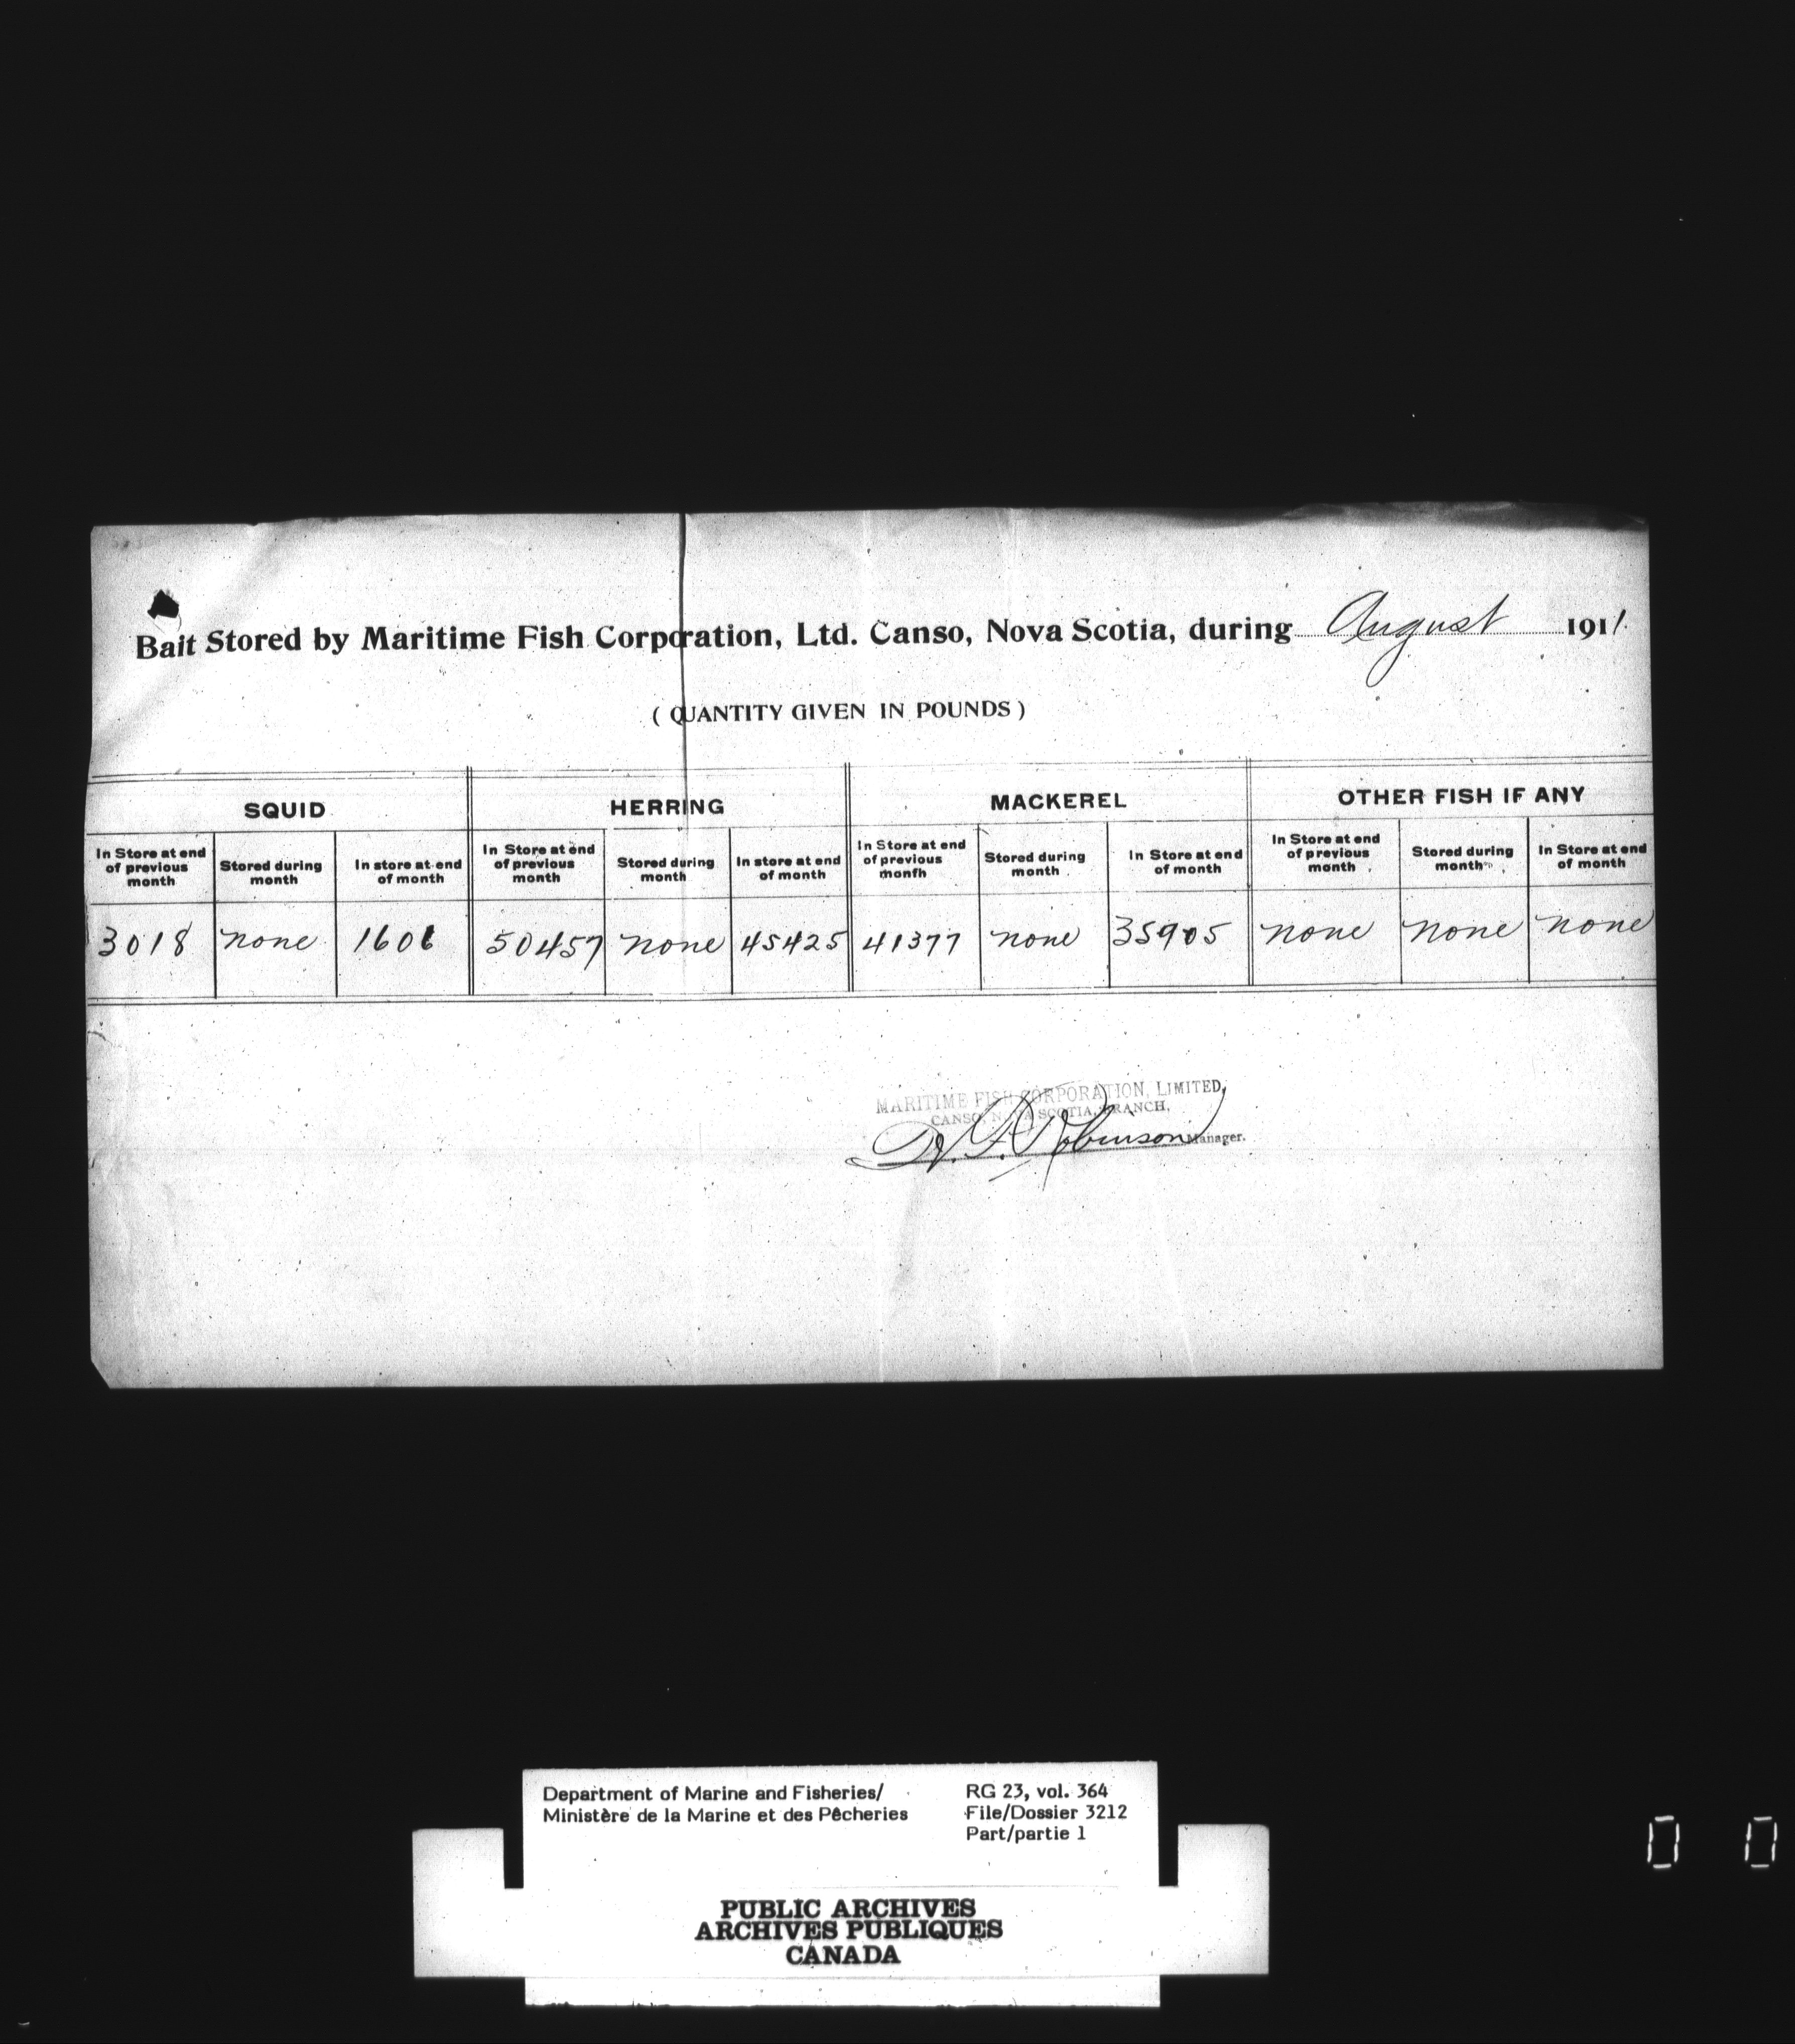 Bait Stored by Maritime Fish Corporation, Ltd. Canso, Nova Scotia, during August 1911.
( QUANTITY GIVEN IN POUNDS )
SQUID HERRING MACKEREL OTHER FISH IF ANY
In Store at end of previous month Stored during month In store at end of month In Store at end of previous month Stored during month In store at end of month In Store at end of previous monfh Stored during month In Store at end of month In Store at end of previous month Stored during month In Store at end of month
3018 none 1601 50457 none 45425 41377 none 35905 none none none
MARITIME FISH CORPORATION, LIMITED,
CANSO, NOVA SCOTIA, BRANCH,
Robinson Manager.
Department of Marine and Fisheries/
Ministère de la Marine et des Pêcheries
RG 23, vol. 364
File/Dossier 3212
Part/partie 1
PUBLIC ARCHIVES
ARCHIVES PUBLIQUES
CANADA
0 0